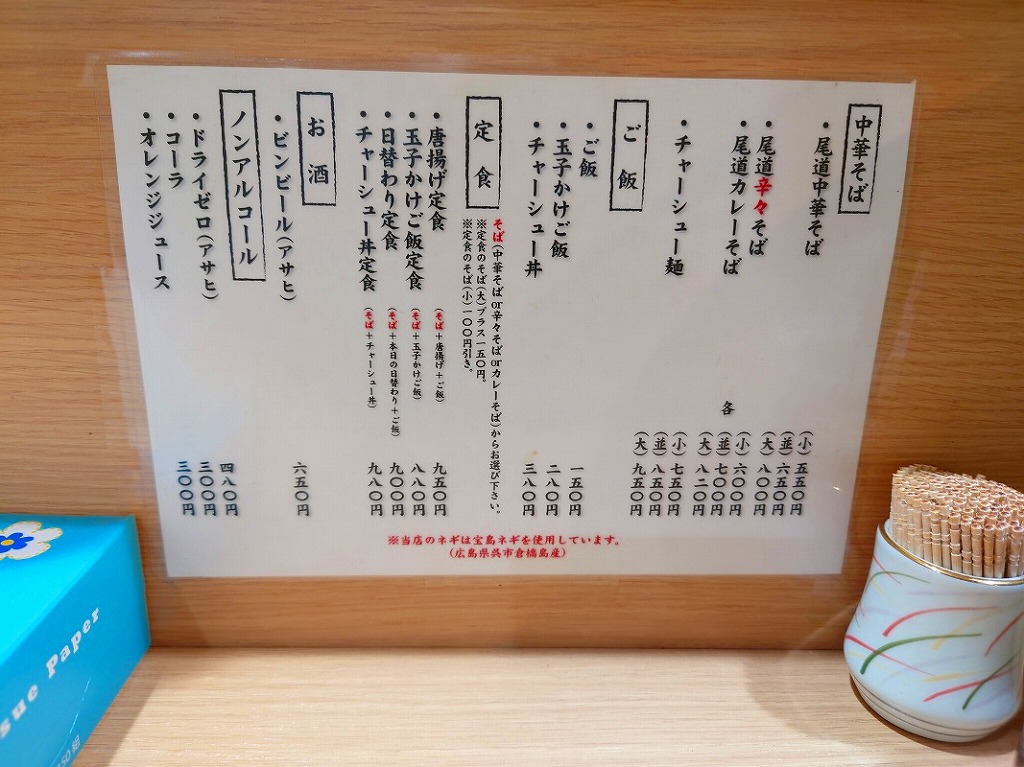 中華そば
・尾道中華そば
(小)五五〇円
(並)六五〇円
(大)八〇〇円
・尾道辛々そば
・尾道カレーそば
各
(小)六〇〇円
(並)七〇〇円
(大)八二〇円
・チャーシュー麺
(小)七五〇円
(並)八五〇円
(大)九五〇円
ご飯
・ご飯 一五〇円
・玉子かけご飯 二八〇円
・チャーシュー丼 三八〇円
定食
そば(中華そばor辛々そばorカレーそば)からお選び下さい。
※定食のそば(大)プラス一五〇円。
※定食のそば(小)一〇〇円引き。
・唐揚げ定食(そば+唐揚げ+ご飯) 九五〇円
・玉子かけご飯定食(そば+玉子かけご飯) 八八〇円
・日替わり定食(そば+本日の日替わり+ご飯) 九〇〇円
・チャーシュー丼定食(そば+チャーシュー丼) 九八〇円
お酒
・ビンビール(アサヒ) 六五〇円
ノンアルコール
・ドライゼロ(アサヒ) 四八〇円
・コーラ 三〇〇円
・オレンジジュース 三〇〇円
※当店のネギは宝島ネギを使用しています。
(広島県呉市倉橋島産)
sue Paper